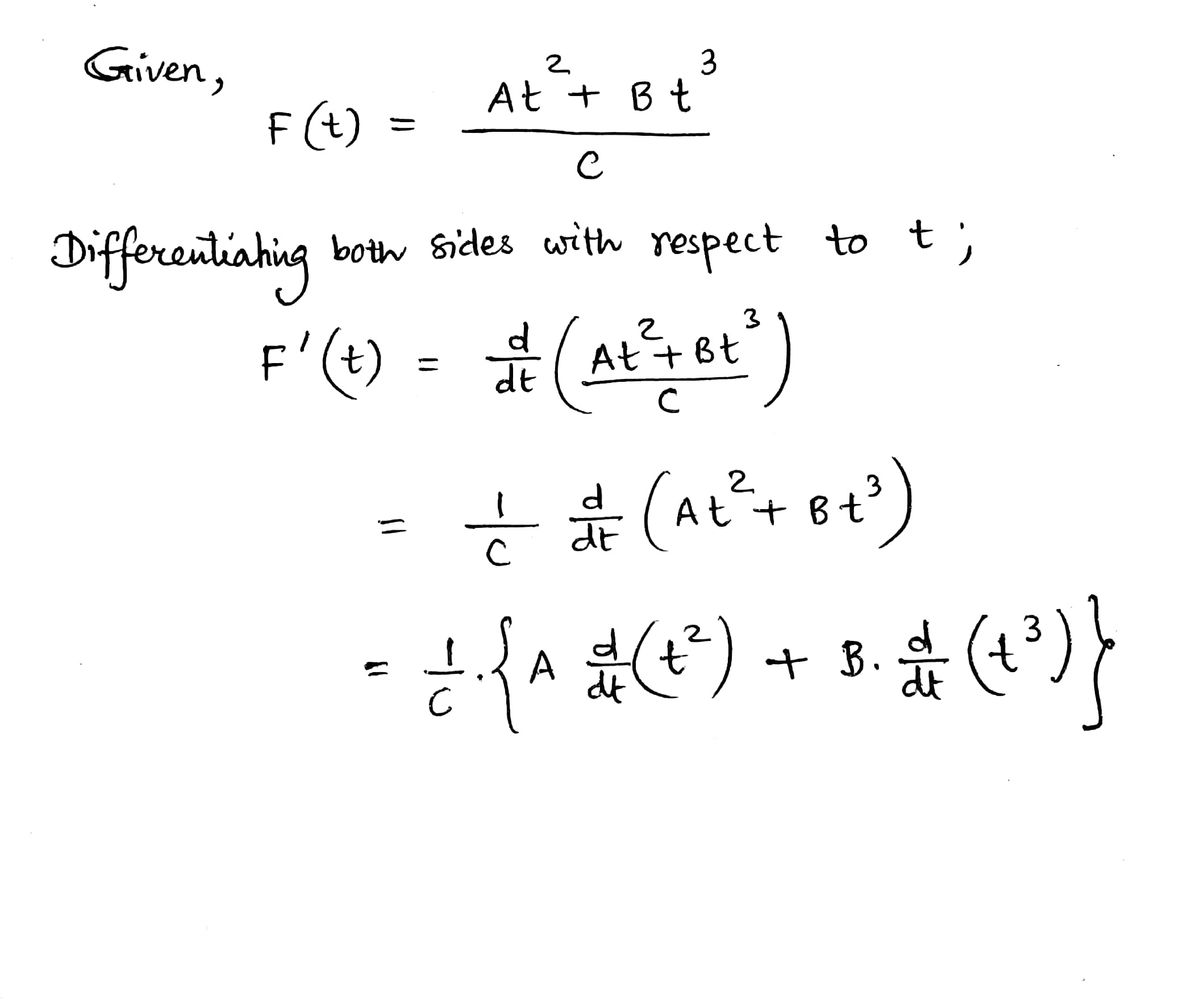 Given,
F(t) = (At² + Bt³)/C
Differentiating both sides with respect to t;
F'(t) = d/dt ((At² + Bt³)/C)
= 1/C d/dt (At² + Bt³)
= 1/C . {A d/dt (t²) + B. d/dt (t³)}